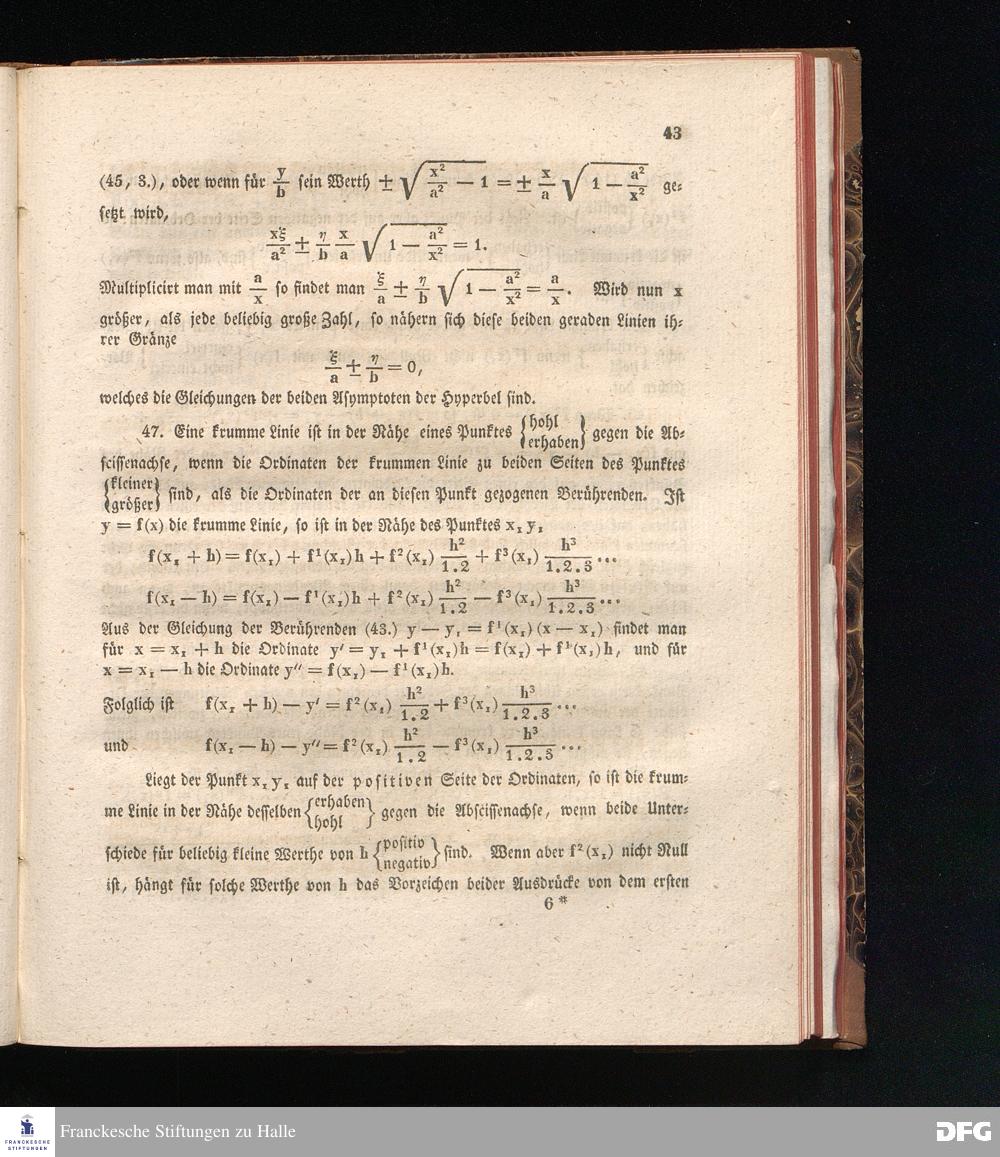 43
(45, 3.), oder wenn für y/b sein Werth ± √(x²/a² — 1) = ± x/a √(1 — a²/x²) ge-
setzt wird,
xξ/a² ± η/b x/a √(1 — a²/x²) = 1.
Multiplicirt man mit a/x so findet man ξ/a ± η/b √(1 — a²/x²) = a/x. Wird nun x
größer, als jede beliebig große Zahl, so nähern sich diese beiden geraden Linien ih-
rer Gränze
ξ/a ± η/b = 0,
welches die Gleichungen der beiden Asymptoten der Hyperbel sind.
47. Eine krumme Linie ist in der Nähe eines Punktes {hohl / erhaben} gegen die Ab-
scissenachse, wenn die Ordinaten der krummen Linie zu beiden Seiten des Punktes
{kleiner / größer} sind, als die Ordinaten der an diesen Punkt gezogenen Berührenden. Ist
y = f(x) die krumme Linie, so ist in der Nähe des Punktes x₁ y₁
f(x₁ + h) = f(x₁) + f¹(x₁)h + f²(x₁) h²/1.2 + f³(x₁) h³/1.2.3 ...
f(x₁ — h) = f(x₁) — f¹(x₁)h + f²(x₁) h²/1.2 — f³(x₁) h³/1.2.3 ...
Aus der Gleichung der Berührenden (43.) y — y₁ = f¹(x₁) (x — x₁) findet man
für x = x₁ + h die Ordinate y′ = y₁ + f¹(x₁)h = f(x₁) + f¹(x₁)h, und für
x = x₁ — h die Ordinate y″ = f(x₁) — f¹(x₁)h.
Folglich ist f(x₁ + h) — y′ = f²(x₁) h²/1.2 + f³(x₁) h³/1.2.3 ...
und f(x₁ — h) — y″ = f²(x₁) h²/1.2 — f³(x₁) h³/1.2.3 ...
Liegt der Punkt x₁ y₁ auf der positiven Seite der Ordinaten, so ist die krum-
me Linie in der Nähe desselben {erhaben / hohl} gegen die Abscissenachse, wenn beide Unter-
schiede für beliebig kleine Werthe von h {positiv / negativ} sind. Wenn aber f²(x₁) nicht Null
ist, hängt für solche Werthe von h das Vorzeichen beider Ausdrücke von dem ersten
6 *
FRANCKESCHE
STIFTUNGEN
Franckesche Stiftungen zu Halle
DFG